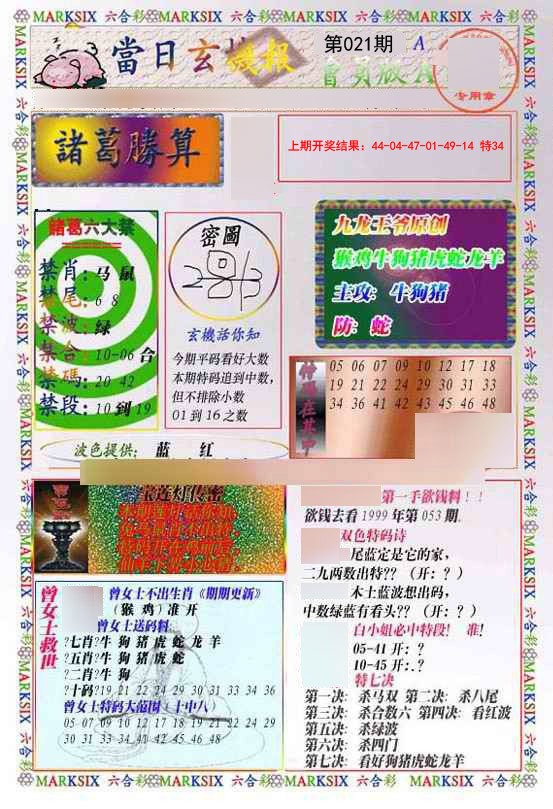 MARKSIX 六合彩 MARKSIX 六合彩 MARKSIX 六合彩 MARKSIX 六合彩
當日玄機報
第021期
A
會員版A
专用章
諸葛勝算
上期开奖结果: 44-04-47-01-49-14 特34
諸葛六大禁
禁肖: 马 鼠
禁尾: 6 8
禁波: 绿
禁合: 10-06 合
禁碼: 20 42
禁段: 10 到 19
密圖
玄機話你知
今期平码看好大数
本期特码追到中数,
但不排除小数
01 到 16 之数
九龙王爷原创
猴鸡牛狗猪虎蛇龙羊
主攻: 牛狗猪
防: 蛇
05 06 07 09 10 12 17 18
19 21 22 24 29 30 31 33
34 36 41 42 43 45 46 48
波色提供: 蓝 红
宝莲灯传密
曾女士救世
曾女士不出生肖《期期更新》
(猴 鸡) 准 开
曾女士送码料:
?七肖?牛 狗 猪 虎 蛇 龙 羊
?五肖?牛 狗 猪 虎 蛇
?二肖?牛 狗
?十码?19 21 22 24 29 30 31 33 34 36
曾女士特码大范围 (十中八)
05 07 09 10 12 17 18 19 21 22 24 29
30 31 33 34 41 42 45 46 48
第一手欲钱料!!
欲钱去看 1999 年第 053 期.
双色特码诗
尾蓝定是它的家,
二九两数出特?? (开: ? )
木土蓝波想出码,
中数绿蓝有看头?? (开: ? )
白小姐必中特段! 准!
05-41 开: ?
10-45 开: .?
特七决
第一决: 杀马双 第二决: 杀八尾
第三决: 杀合数六 第四决: 看红波
第五决: 杀绿波
第六决: 杀四门
第七决: 看好狗猪虎蛇龙羊
MARKSIX 六合彩 MARKSIX 六合彩 MARKSIX 六合彩 MARKSIX 六合彩